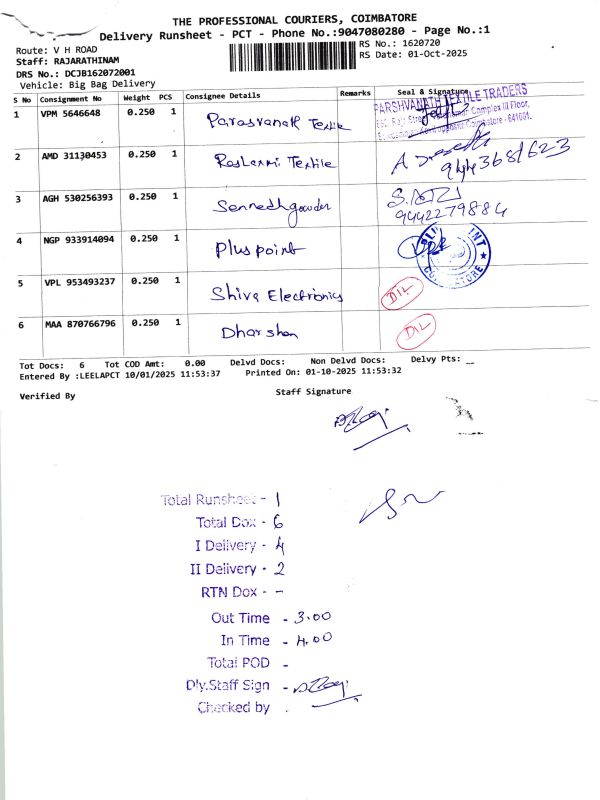 THE PROFESSIONAL COURIERS, COIMBATORE
Delivery Runsheet - PCT - Phone No.:9047080280 - Page No.:1
Route: V H ROAD
RS No.: 1620720
Staff: RAJARATHINAM
RS Date: 01-Oct-2025
DRS No.: DCJB162072001
Vehicle: Big Bag Delivery
S No Consignment No Weight PCS Consignee Details Remarks Seal & Signature
1 VPM 5646648 0.250 1 Parasvanath Textile PARSHVANATH TEXTILE TRADERS
Complex III Floor,
- 641001.
2 AMD 31130453 0.250 1 RasLaxmi Textile
3 AGH 530256393 0.250 1 Sennedhgowder
9442279884
4 NGP 933914094 0.250 1 Pluspoint
COIMBATORE
5 VPL 953493237 0.250 1 Shiva Electronics D/L
6 MAA 870766796 0.250 1 Dharshan D/L
Tot Docs: 6 Tot COD Amt: 0.00 Delvd Docs: Non Delvd Docs: Delvy Pts: __
Entered By :LEELAPCT 10/01/2025 11:53:37 Printed On: 01-10-2025 11:53:32
Verified By Staff Signature
Total Runsheet - 1
Total Dox - 6
I Delivery - 4
II Delivery - 2
RTN Dox - -
Out Time - 3.00
In Time - 4.00
Total POD -
Dly.Staff Sign -
Checked by .